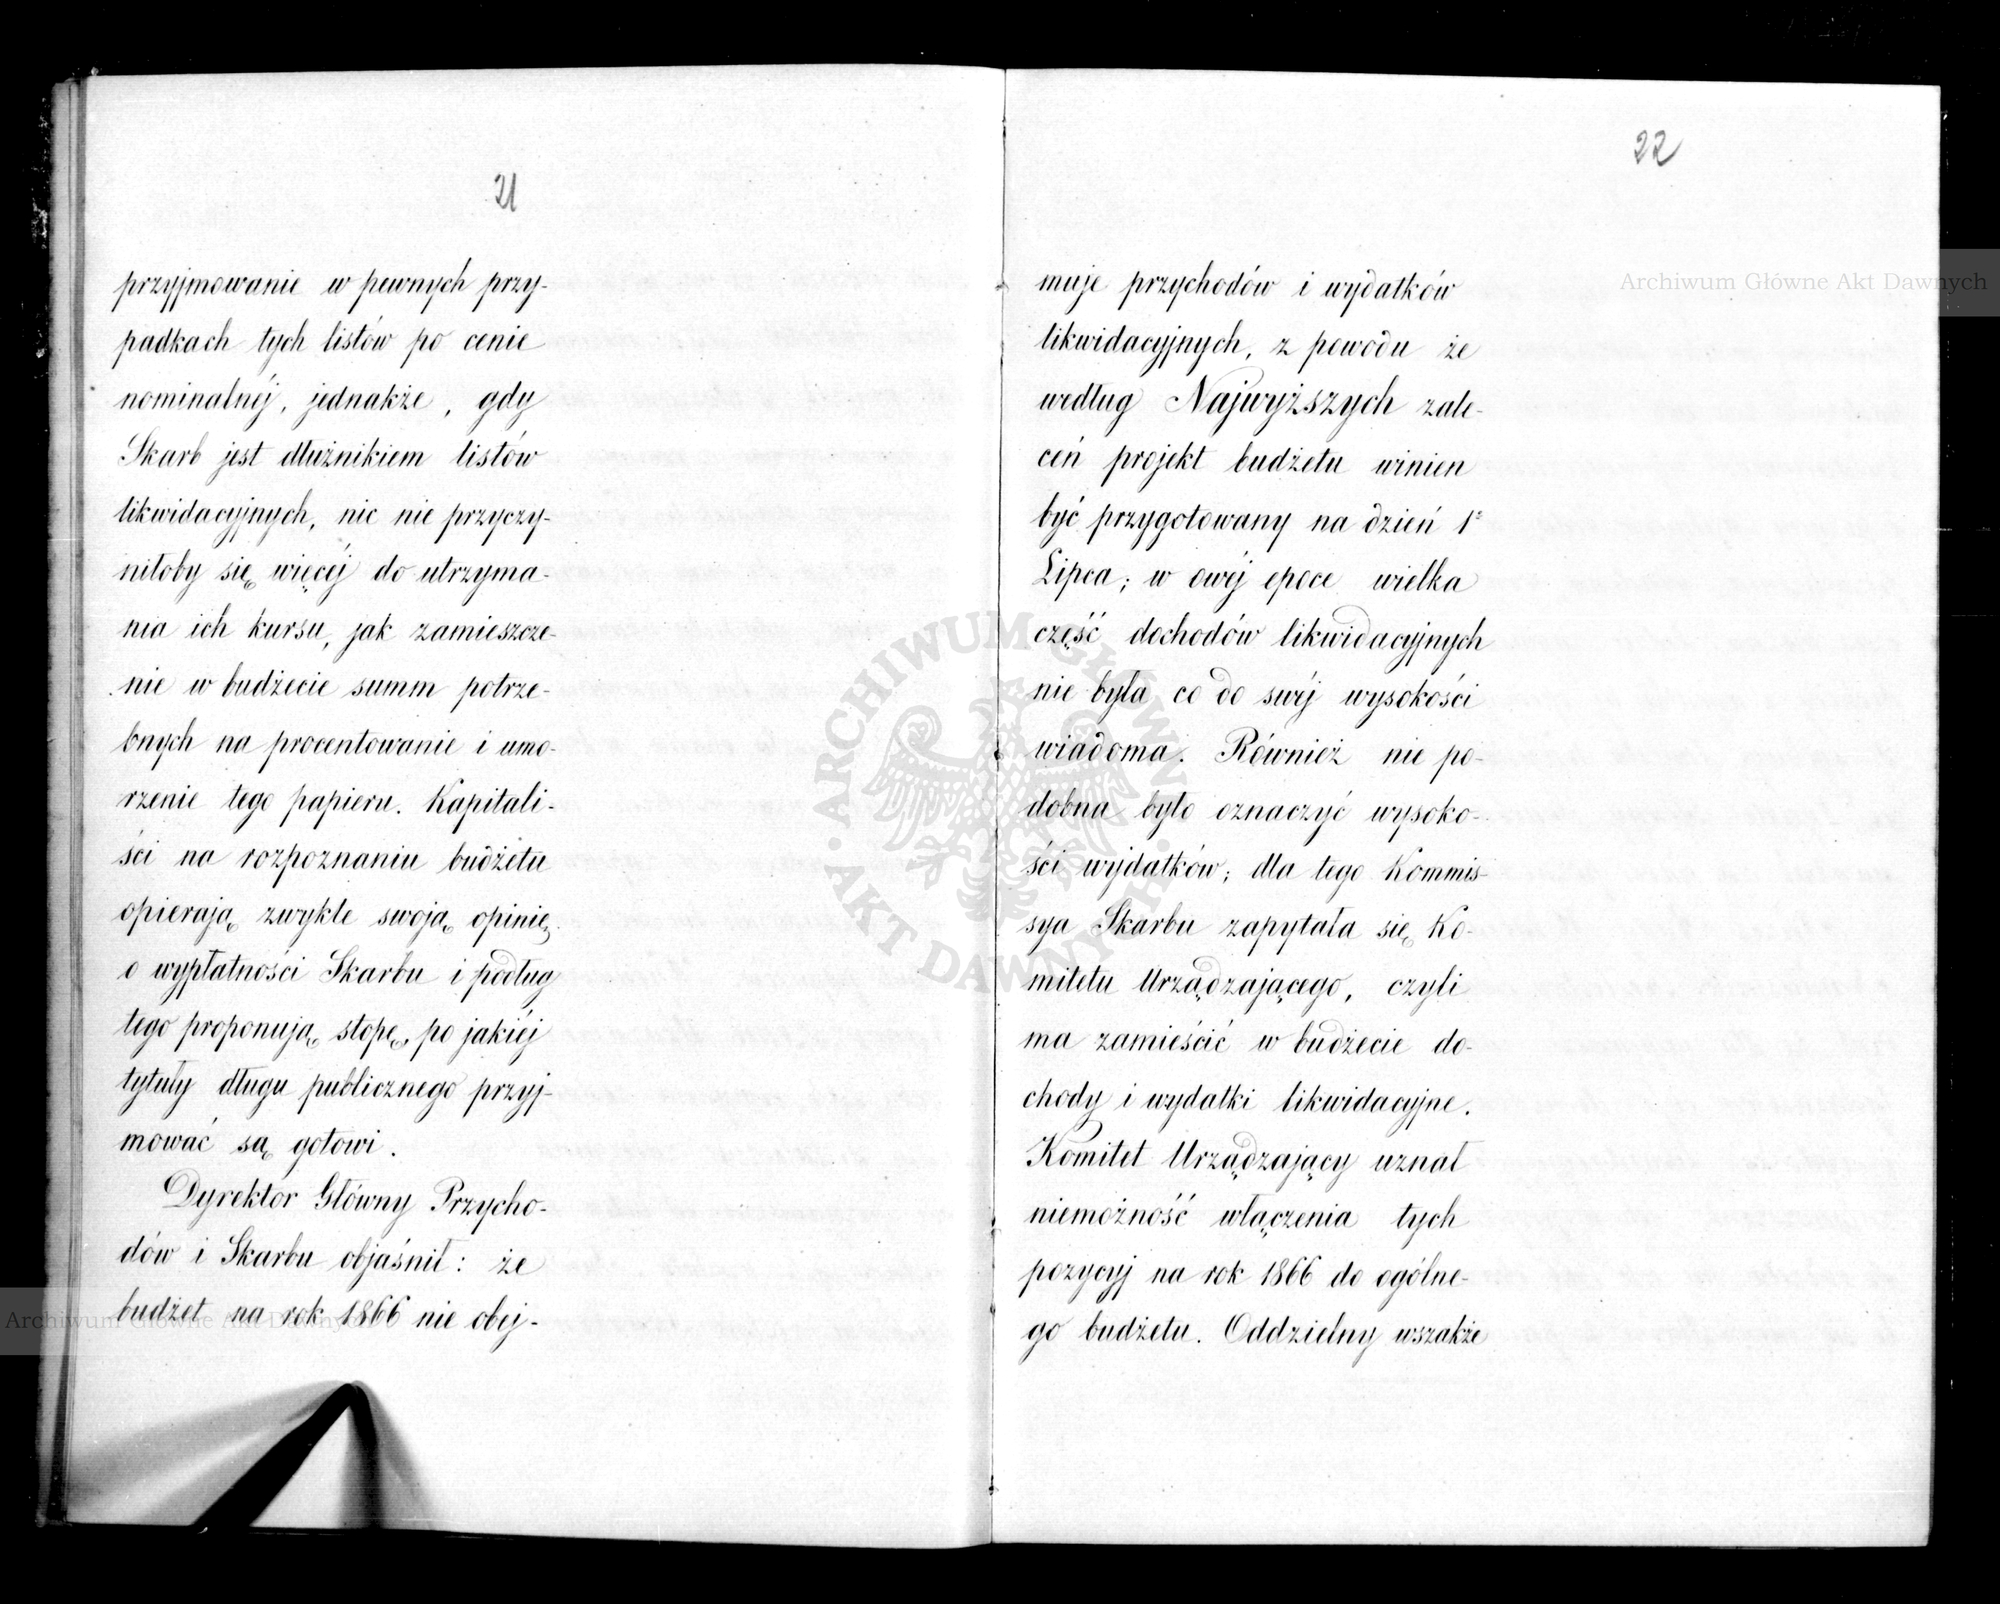 21
przyjmowanie w pewnych przy-
padkach tych listów po cenie
nominalnéj, jednakże, gdy
Skarb jest dłużnikiem listów
likwidacyjnych, nic nie przyczy-
niłoby się więcéj do utrzyma-
nia ich kursu, jak zamieszcze-
nie w budżecie summ potrze-
bnych na procentowanie i umo-
rzenie tego papieru. Kapitali-
ści na rozpoznaniu budżetu
opierają zwykle swoją opinię
o wypłatności Skarbu i podług
tego proponują stopę, po jakiéj
tytuły długu publicznego przyj-
mować są gotowi.
Dyrektor Główny Przycho-
dów i Skarbu objaśnił: że
budżet na rok 1866 nie obej-
22
muje przychodów i wydatków
likwidacyjnych, z powodu że
według Najwyższych zale-
ceń projekt budżetu winien
być przygotowany na dzień 1º
Lipca; w owéj epoce wielka
część dochodów likwidacyjnych
nie była co do swéj wysokości
wiadoma. Również nie po-
dobna było oznaczyć wysoko-
ści wydatków; dla tego Kommis-
sya Skarbu zapytała się Ko-
mitetu Urządzającego, czyli
ma zamieścić w budżecie do-
chody i wydatki likwidacyjne.
Komitet Urządzający uznał
niemożność włączenia tych
pozycyj na rok 1866 do ogólne-
go budżetu. Oddzielny wszakże
Archiwum Główne Akt Dawnych
Archiwum Główne Akt Dawnych
ARCHIWUM GŁÓWNE
AKT DAWNYCH